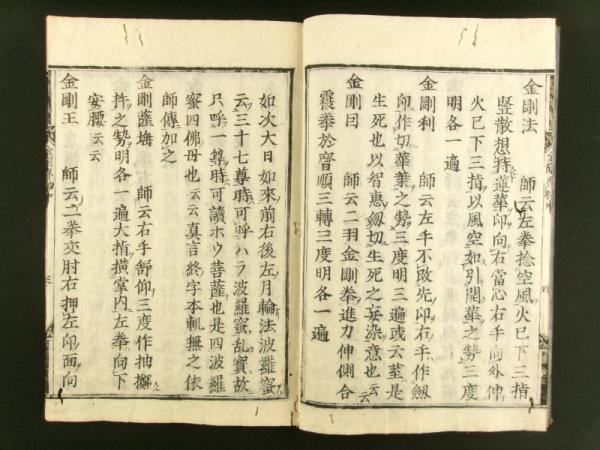 金剛法　師云左拳捻空風火巳下三指
竪散想持蓮華印向右當心右手向外伸
火巳下三指以風空如引開華之勢三度
明各一遍
金剛利　師云左手不改先印右手作劔
印作切華葉之勢三度明三遍或云莖是
生死也以智惠劔切生死之妄染意也云
金剛曰　師云二羽金剛拳進力伸側合
云
覆拳於齊順三轉三度明各一遍
如次大日如來前右後左月輪法波羅蜜
云三十七尊時可呼ハラ波羅蜜乱寳故
只呼一尊時可讀ホウ菩薩也是四波羅
蜜四佛母也云云真言終字本軌無之依
師傳加之
金剛薩埵　師云右手舒仰三度作抽擲
杵之勢明各一遍大指横掌内左拳向下
安腰云云
金剛王　師云二拳交肘右押左印面向